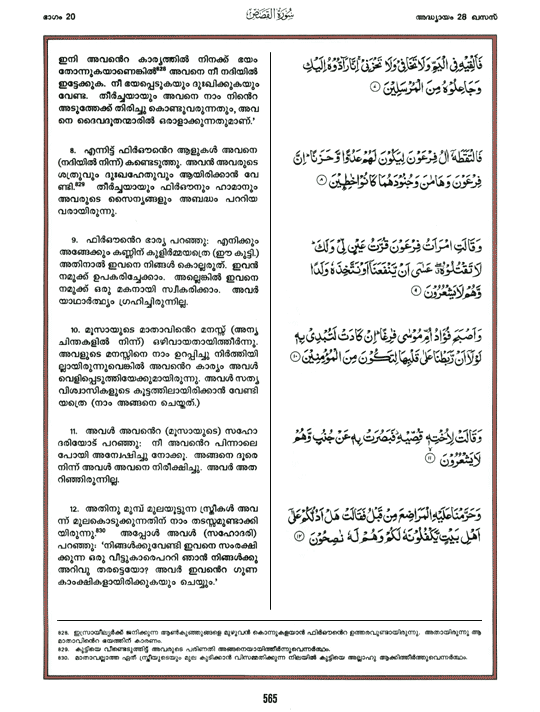 ഭാഗം 20
سُورَةُ القَصَصِ
അദ്ധ്യായം 28 ഖസസ്
ഇനി അവന്റെ കാര്യത്തിൽ നിനക്ക് ഭയം
തോന്നുകയാണെങ്കിൽ828 അവനെ നീ നദിയിൽ
ഇട്ടേക്കുക. നീ ഭയപ്പെടുകയും ദുഃഖിക്കുകയും
വേണ്ട. തീർച്ചയായും അവനെ നാം നിന്റെ
അടുത്തേക്ക് തിരിച്ചു കൊണ്ടുവരുന്നതും, അവ
നെ ദൈവദൂതന്മാരിൽ ഒരാളാക്കുന്നതുമാണ്.'
فَأَلْقِيهِ فِى الْيَمِّ وَلَا تَخَافِى وَلَا تَحْزَنِى إِنَّا رَآدُّوهُ إِلَيْكِ
وَجَاعِلُوهُ مِنَ الْمُرْسَلِينَ ٧
8. എന്നിട്ട് ഫിർഔന്റെ ആളുകൾ അവനെ
(നദിയിൽ നിന്ന്) കണ്ടെടുത്തു. അവൻ അവരുടെ
ശത്രുവും ദുഃഖഹേതുവും ആയിരിക്കാൻ വേ
ണ്ടി.829 തീർച്ചയായും ഫിർഔനും ഹാമാനും
അവരുടെ സൈന്യങ്ങളും അബദ്ധം പറ്റിയ
വരായിരുന്നു.
فَالْتَقَطَهُ آلُ فِرْعَوْنَ لِيَكُونَ لَهُمْ عَدُوًّا وَحَزَنًا إِنَّ
فِرْعَوْنَ وَهَامَٰنَ وَجُنُودَهُمَا كَانُوا خَاطِئِينَ ٨
9. ഫിർഔന്റെ ഭാര്യ പറഞ്ഞു: എനിക്കും
അങ്ങേക്കും കണ്ണിന് കുളിർമ്മയത്രെ (ഈ കുട്ടി.)
അതിനാൽ ഇവനെ നിങ്ങൾ കൊല്ലരുത്. ഇവൻ
നമുക്ക് ഉപകരിച്ചേക്കാം. അല്ലെങ്കിൽ ഇവനെ
നമുക്ക് ഒരു മകനായി സ്വീകരിക്കാം. അവർ
യാഥാർത്ഥ്യം ഗ്രഹിച്ചിരുന്നില്ല.
وَقَالَتِ امْرَأَتُ فِرْعَوْنَ قُرَّتُ عَيْنٍ لِّى وَلَكَ
لَا تَقْتُلُوهُ عَسَىٰ أَن يَنفَعَنَا أَوْ نَتَّخِذَهُ وَلَدًا
وَهُمْ لَا يَشْعُرُونَ ٩
10. മൂസായുടെ മാതാവിന്റെ മനസ്സ് (അന്യ
ചിന്തകളിൽ നിന്ന്) ഒഴിവായതായിത്തീർന്നു.
അവളുടെ മനസ്സിനെ നാം ഉറപ്പിച്ചു നിർത്തിയി
ല്ലായിരുന്നുവെങ്കിൽ അവന്റെ കാര്യം അവൾ
വെളിപ്പെടുത്തിയേക്കുമായിരുന്നു. അവൾ സത്യ
വിശ്വാസികളുടെ കൂട്ടത്തിലായിരിക്കാൻ വേണ്ടി
യത്രെ (നാം അങ്ങനെ ചെയ്തത്.)
وَأَصْبَحَ فُؤَادُ أُمِّ مُوسَىٰ فَٰرِغًا إِن كَادَتْ لَتُبْدِى بِهِ
لَوْلَا أَن رَّبَطْنَا عَلَىٰ قَلْبِهَا لِتَكُونَ مِنَ الْمُؤْمِنِينَ ١٠
11. അവൾ അവന്റെ (മൂസായുടെ) സഹോ
ദരിയോട് പറഞ്ഞു: നീ അവന്റെ പിന്നാലെ
പോയി അന്വേഷിച്ചു നോക്കൂ. അങ്ങനെ ദൂരെ
നിന്ന് അവൾ അവനെ നിരീക്ഷിച്ചു. അവർ അത
റിഞ്ഞിരുന്നില്ല.
وَقَالَتْ لِأُخْتِهِ قُصِّيهِ فَبَصُرَتْ بِهِ عَن جُنُبٍ وَهُمْ
لَا يَشْعُرُونَ ١١
12. അതിനു മുമ്പ് മുലയൂട്ടുന്ന സ്ത്രീകൾ അവ
ന്ന് മുലകൊടുക്കുന്നതിന് നാം തടസ്സമുണ്ടാക്കി
യിരുന്നു.830 അപ്പോൾ അവൾ (സഹോദരി)
പറഞ്ഞു: 'നിങ്ങൾക്കുവേണ്ടി ഇവനെ സംരക്ഷി
ക്കുന്ന ഒരു വീട്ടുകാരെപററി ഞാൻ നിങ്ങൾക്കു
അറിവു തരട്ടെയോ? അവർ ഇവന്റെ ഗുണ
കാംക്ഷികളായിരിക്കുകയും ചെയ്യും.'
وَحَرَّمْنَا عَلَيْهِ الْمَرَاضِعَ مِن قَبْلُ فَقَالَتْ هَلْ أَدُلُّكُمْ عَلَىٰ
أَهْلِ بَيْتٍ يَكْفُلُونَهُ لَكُمْ وَهُمْ لَهُ نَٰصِحُونَ ١٢
828. ഇസ്രായീല്യർക്ക് ജനിക്കുന്ന ആൺകുഞ്ഞുങ്ങളെ മുഴുവൻ കൊന്നുകളയാൻ ഫിർഔന്റെ ഉത്തരവുണ്ടായിരുന്നു. അതായിരുന്നു ആ
മാതാവിന്റെ ഭയത്തിന് കാരണം.
829. കുട്ടിയെ വീണ്ടെടുത്തിട്ട് അവരുടെ പരിണതി അങ്ങനെയായിത്തീർന്നുവെന്നർത്ഥം.
830. മാതാവല്ലാത്ത ഏത് സ്ത്രീയുടെയും മുല കുടിക്കാൻ വിസമ്മതിക്കുന്ന നിലയിൽ കുട്ടിയെ അല്ലാഹു ആക്കിത്തീർത്തുവെന്നർത്ഥം.
565